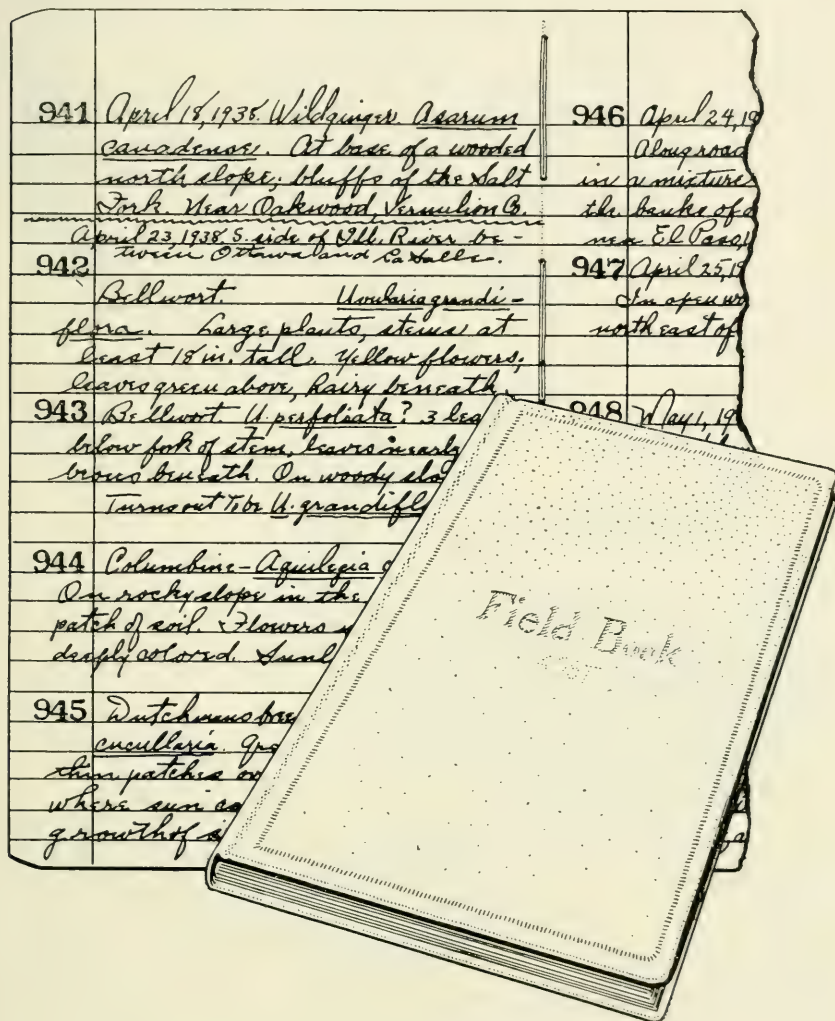 941 April 18, 1938. Wildginger. Asarum
canadense. At base of a wooded
north slope; bluffs of the Salt
Fork. Near Oakwood, Vermilion Co.
April 23, 1938. S. side of Ill. River be-
942 tween Ottawa and La Salle.
Bellwort. Uvularia grandi-
flora. Large plants, stems at
least 18 in. tall. Yellow flowers;
leaves green above, hairy beneath.
943 Bellwort. U. perfoliata? 3 lea
below fork of stem, leaves nearly
brous beneath. On woody slo
Turns out to be U. grandifl
944 Columbine - Aquilegia c
On rocky slope in the
patch of soil. Flowers
deeply colored. Sunl
945 Dutchmans bree
cucullaria. Gro
thin patches ov
where sun ca
growth of s
946 April 24, 19
Along road
in a mixture
the banks of
near El Paso,
947 April 25, 19
In open wo
northeast of
948 May 1, 19
Field Book